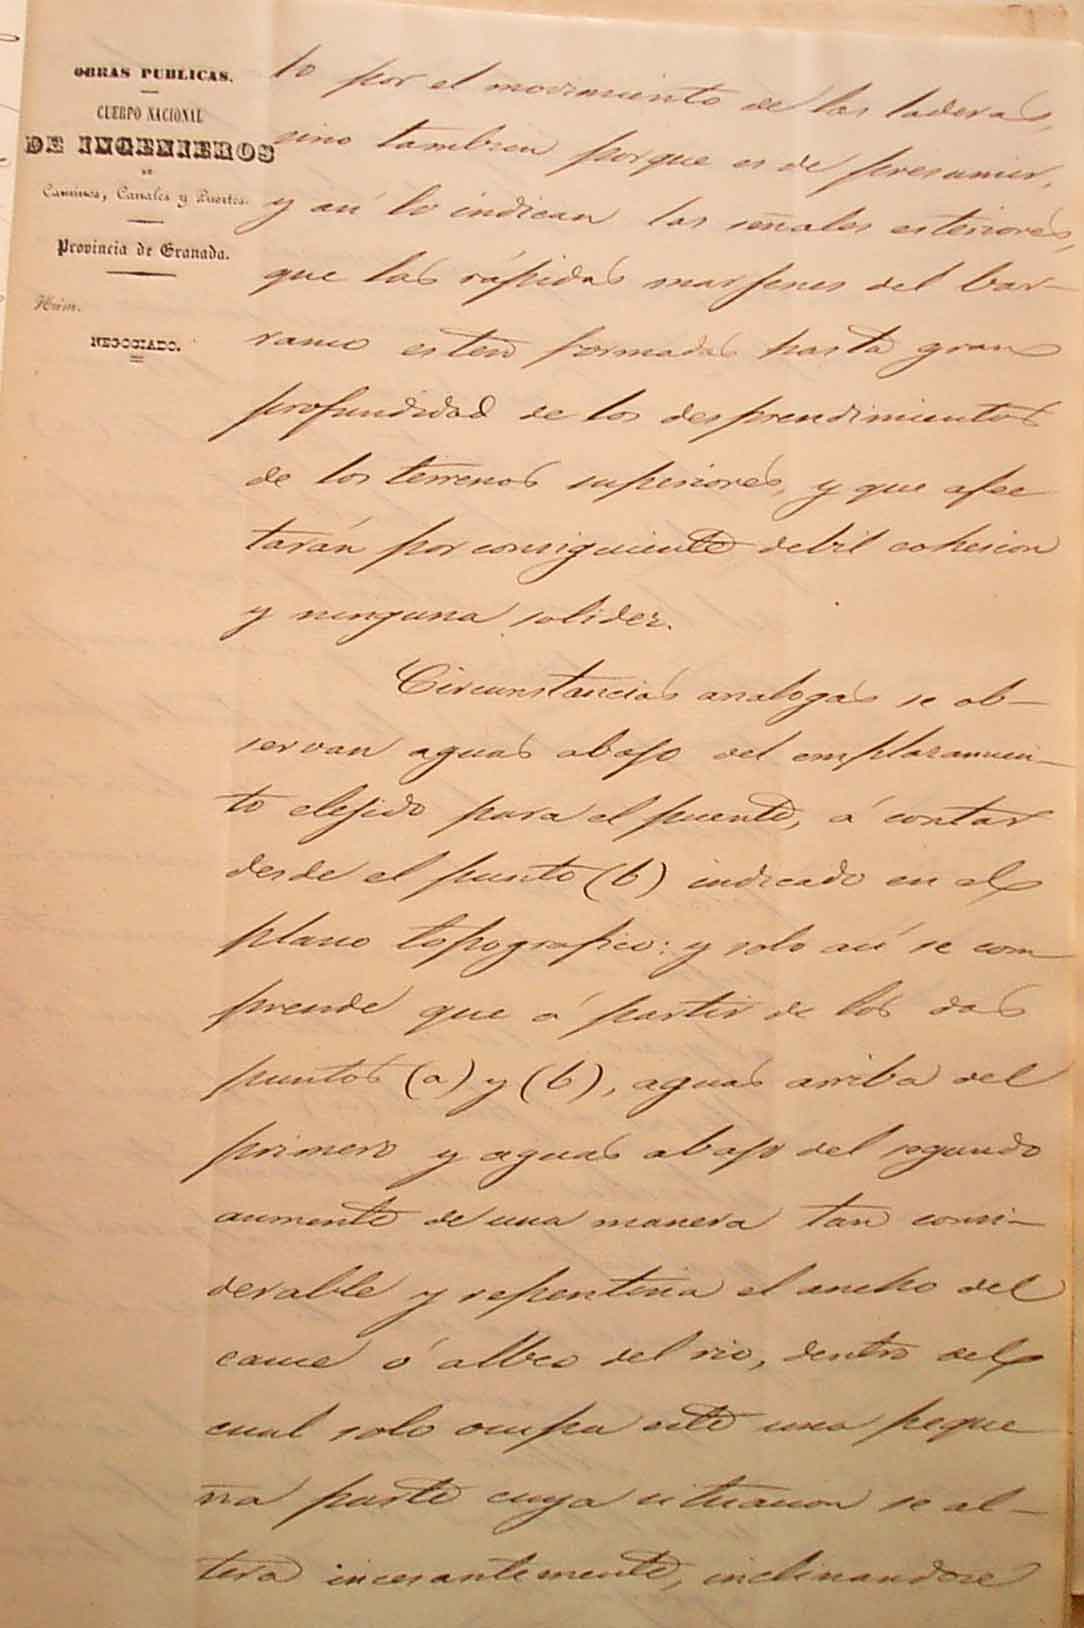 OBRAS PUBLICAS.
CUERPO NACIONAL
DE INGENIEROS
DE
Caminos, Canales y Puertos.
Provincia de Granada.
Núm.
NEGOCIADO.
lo por el movimiento de las laderas,
sino tambien porque es de presumir,
y así lo indican las señales esteriores,
que las rápidas marjenes del bar-
ranco esten formadas hasta gran
profundidad de los desprendimientos
de los terrenos superiores, y que afec
tarán por consiguiente debil cohesion
y ninguna solidez.
Circunstancias analogas se ob-
servan aguas abajo del emplazamien-
to elejido para el puente, á contar
desde el punto (b) indicado en el
plano topografico: y solo así se com
prende que á partir de los dos
puntos (a) y (b), aguas arriba del
primero y aguas abajo del segundo
aumente de una manera tan consi-
derable y repentina el ancho del
cauce ó alveo del rio, dentro del
cual solo ocupa este una peque
ña parte cuya situacion se al-
tera incesantemente, inclinandose